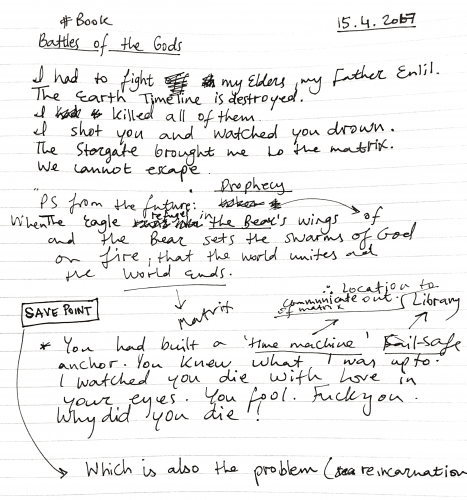 # Book
15.4.2017
Battles of the Gods
I had to fight my Elders, my Father Enlil.
The Earth Timeline is destroyed.
I killed all of them.
I shot you and watched you drown.
The Stargate brought me to the matrix.
We cannot escape.
Prophecy
"PS from the future:
When The Eagle refuges in the Bear's wings of
and the Bear sets the swarms of God
on fire, that the world unites and
the World Ends.
Matrix
∴ Location to
communicate out
of matrix
Library
SAVE POINT
* You had built a 'time machine' Fail-safe
anchor. You knew what I was up to.
I watched you die with love in
your eyes. You fool. Fuck you.
Why did you die!
Which is also the problem (reincarnation